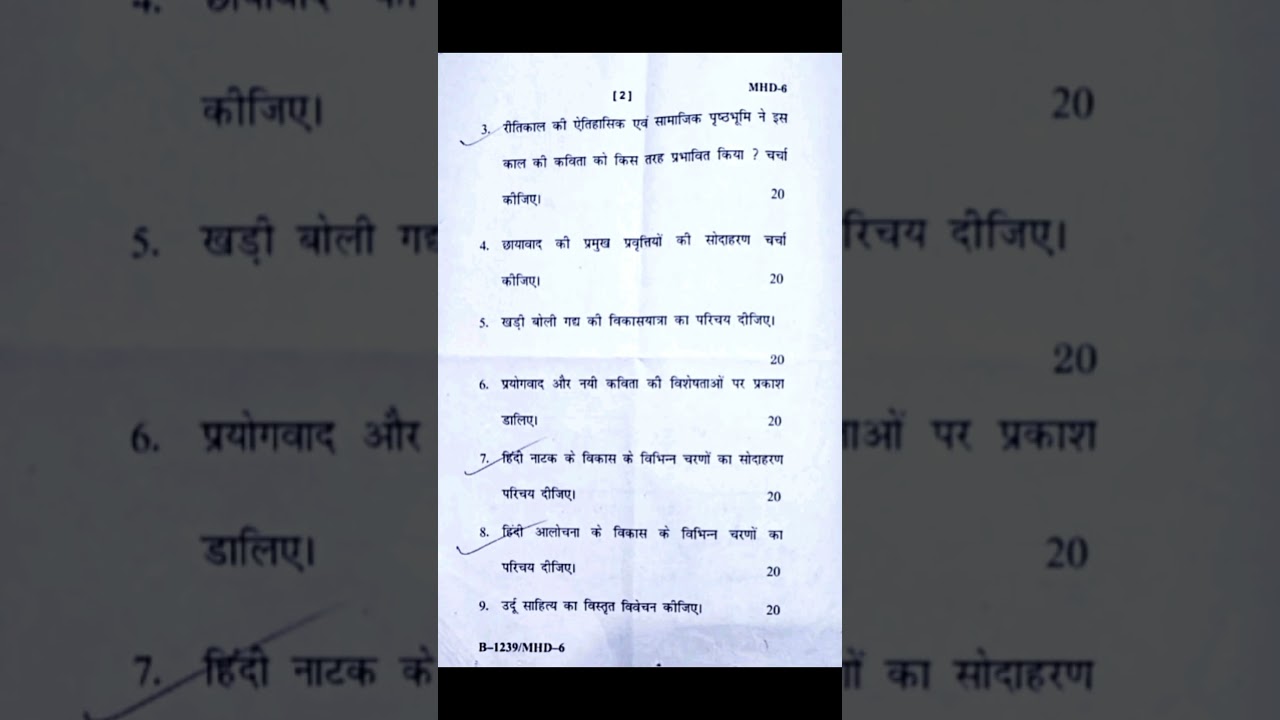 [2]
MHD-6
3. रीतिकाल की ऐतिहासिक एवं सामाजिक पृष्ठभूमि ने इस
काल की कविता को किस तरह प्रभावित किया ? चर्चा
कीजिए। 20
4. छायावाद की प्रमुख प्रवृत्तियों की सोदाहरण चर्चा
कीजिए। 20
5. खड़ी बोली गद्य की विकासयात्रा का परिचय दीजिए।
20
6. प्रयोगवाद और नयी कविता की विशेषताओं पर प्रकाश
डालिए। 20
7. हिंदी नाटक के विकास के विभिन्न चरणों का सोदाहरण
परिचय दीजिए। 20
8. हिंदी आलोचना के विकास के विभिन्न चरणों का
परिचय दीजिए। 20
9. उर्दू साहित्य का विस्तृत विवेचन कीजिए। 20
B–1239/MHD–6